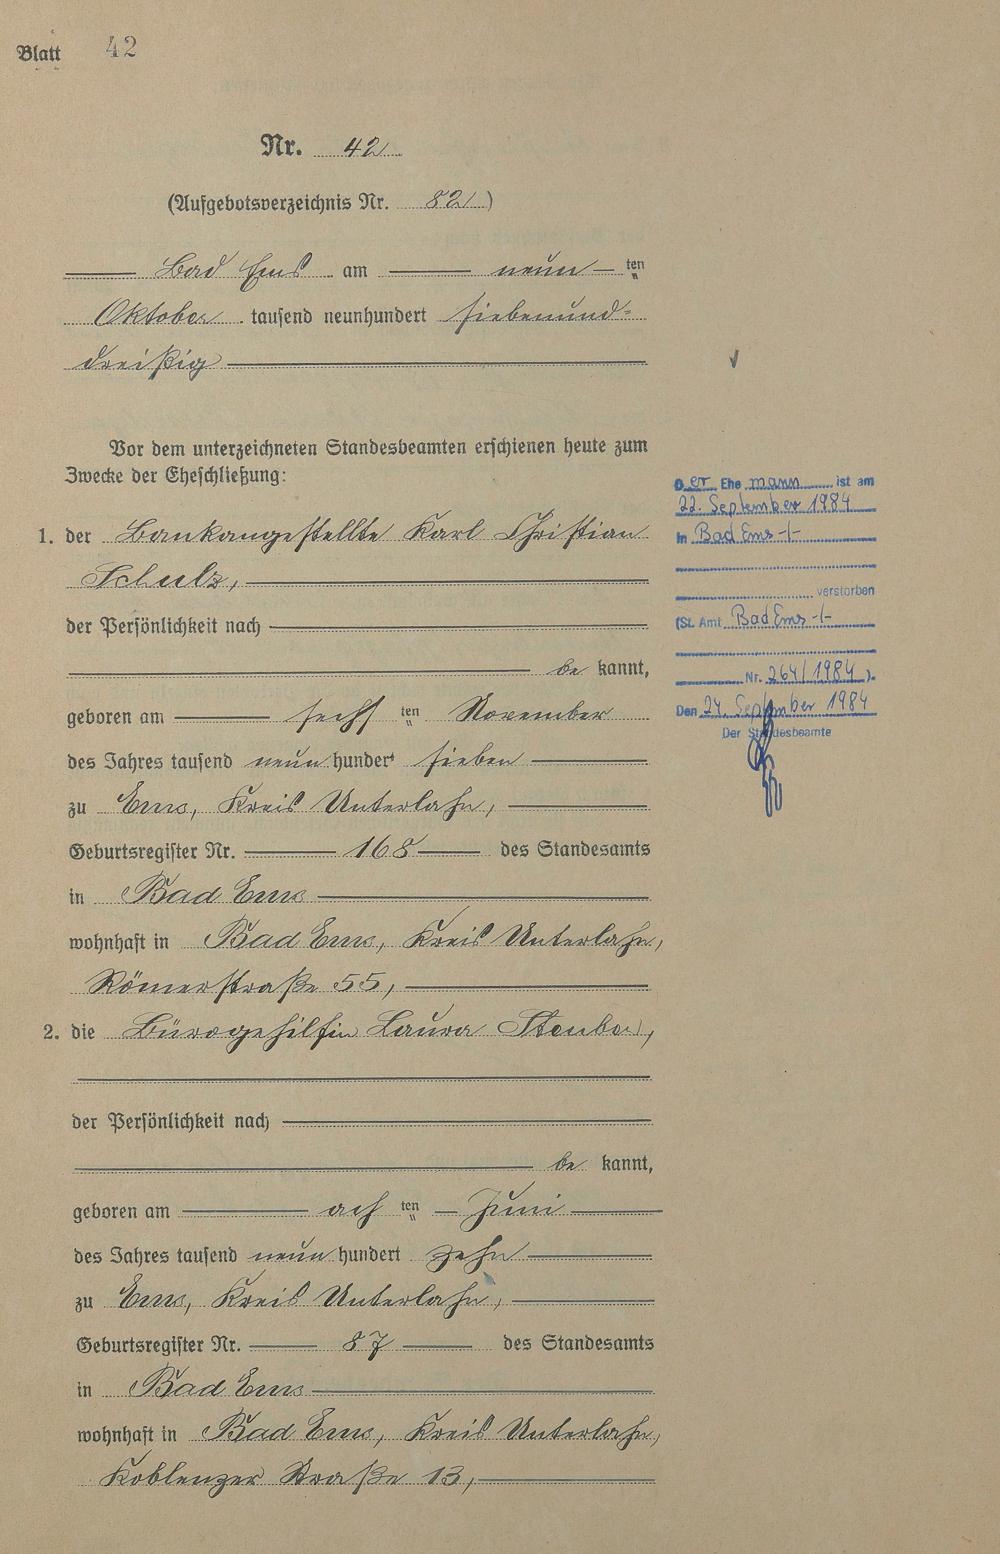 Blatt 42
Nr. 42
(Aufgebotsverzeichnis Nr. 82)
Bad Ems am neun ten
Oktober tausend neunhundert siebenund-
dreißig
Vor dem unterzeichneten Standesbeamten erschienen heute zum
Zwecke der Eheschließung:
1. der Bankangestellte Karl Christian
Schulz,
der Persönlichkeit nach
be kannt,
geboren am sechs ten November
des Jahres tausend neun hundert sieben
zu Ems, Kreis Unterlahn,
Geburtsregister Nr. 168 des Standesamts
in Bad Ems
wohnhaft in Bad Ems, Kreis Unterlahn,
Römerstraße 55,
2. die Bürogehilfin Laura
der Persönlichkeit nach
be kannt,
geboren am ach ten Juni
des Jahres tausend neun hundert zehn
zu Ems, Kreis Unterlahn,
Geburtsregister Nr. 87 des Standesamts
in Bad Ems
wohnhaft in Bad Ems, Kreis Unterlahn,
Koblenzer Straße 13,
D er Ehe mann ist am
22. September 1984
in Bad Ems -/-
verstorben
(St. Amt Bad Ems -/-
Nr. 264/1984 ).
Den 24. September 1984
Der Standesbeamte